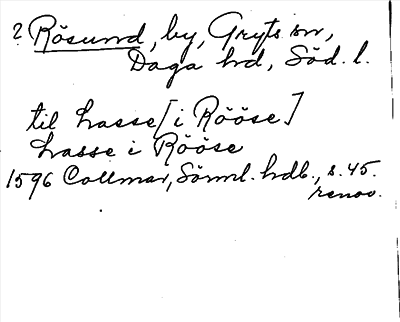 ? Rösund, by, Gryts sn,
Daga hd, Söd. l.
til Lasse [i Rööse]
Lasse i Rööse
1596 Collmar, Sörml. hdb., s. 45.
renov.